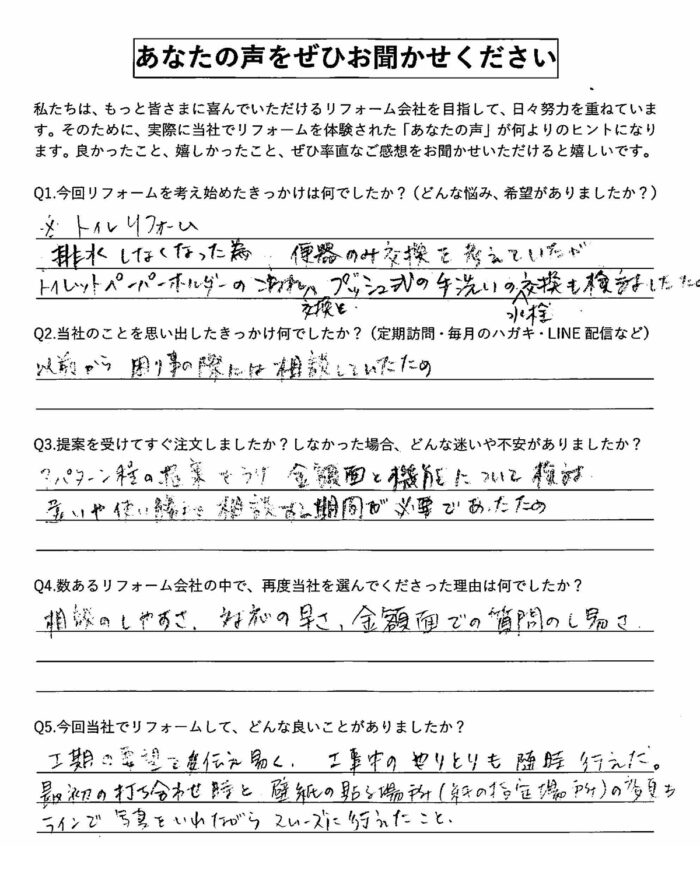 あなたの声をぜひお聞かせください
私たちは、もっと皆さまに喜んでいただけるリフォーム会社を目指して、日々努力を重ねていま
す。そのために、実際に当社でリフォームを体験された「あなたの声」が何よりのヒントになり
ます。良かったこと、嬉しかったこと、ぜひ率直なご感想をお聞かせいただけると嬉しいです。
Q1.今回リフォームを考え始めたきっかけは何でしたか？（どんな悩み、希望がありましたか？）
※ トイレリフォーム
排水しなくなった為 便器のみ交換を考えていたが
トイレットペーパーホルダーの プッシュ式の手洗いの交換も検討したため
交換と 水栓
Q2.当社のことを思い出したきっかけ何でしたか？（定期訪問・毎月のハガキ・LINE 配信など）
以前から 困り事の際には相談していたため
Q3.提案を受けてすぐ注文しましたか？しなかった場合、どんな迷いや不安がありましたか？
パターン程の提案をうけ 金額面と機能について検討
違いや使い勝手を相談する期間が必要であったため
Q4.数あるリフォーム会社の中で、再度当社を選んでくださった理由は何でしたか？
相談のしやすさ、対応の早さ、金額面での質問のし易さ
Q5.今回当社でリフォームして、どんな良いことがありましたか？
工期の要望も伝え易く、工事中のやりとりも随時行えた。
最初の打ち合わせ時と壁紙の貼る場所（紙の指定場所）の
ラインで写真をいれながらスムーズに行えたこと。